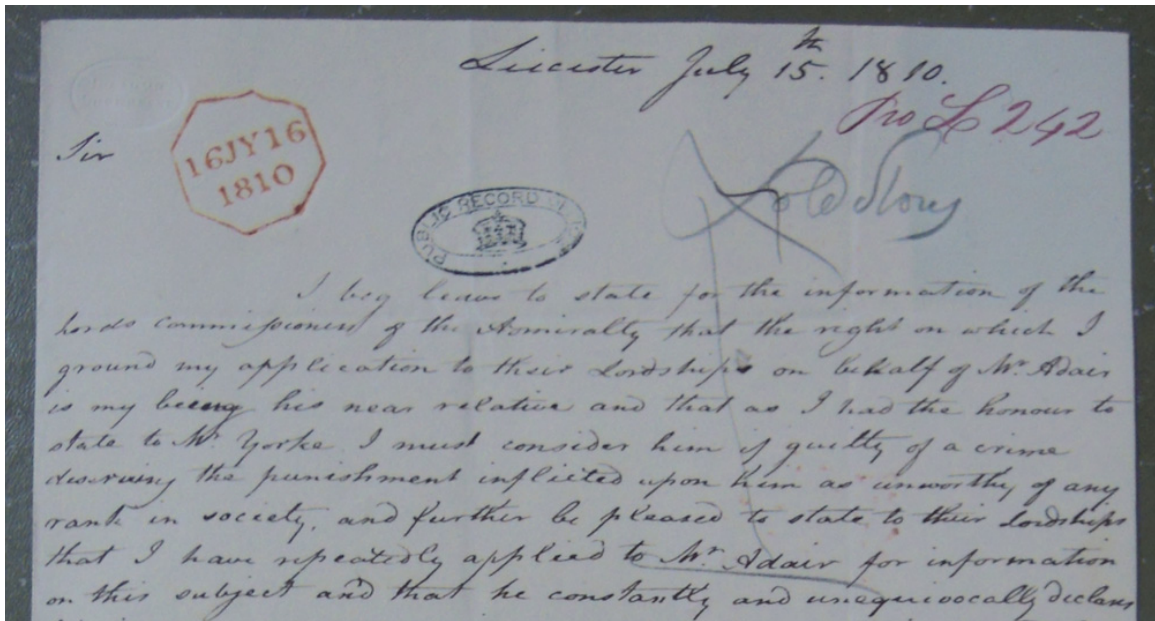 Leicester July 15th. 1810.
Pro L 242
Sir
16JY16
1810
PUBLIC RECORD OFFICE
I beg leave to state for the information of the
Lords Commissioners of the Admiralty that the right on which I
ground my application to their Lordships on behalf of Mr. Adair
is my being his near relative and that as I had the honour to
state to Mr. Yorke I must consider him if guilty of a crime
deserving the punishment inflicted upon him as unworthy of any
rank in society, and further be pleased to state to their Lordships
that I have repeatedly applied to Mr. Adair for information
on this subject and that he constantly and unequivocally declares